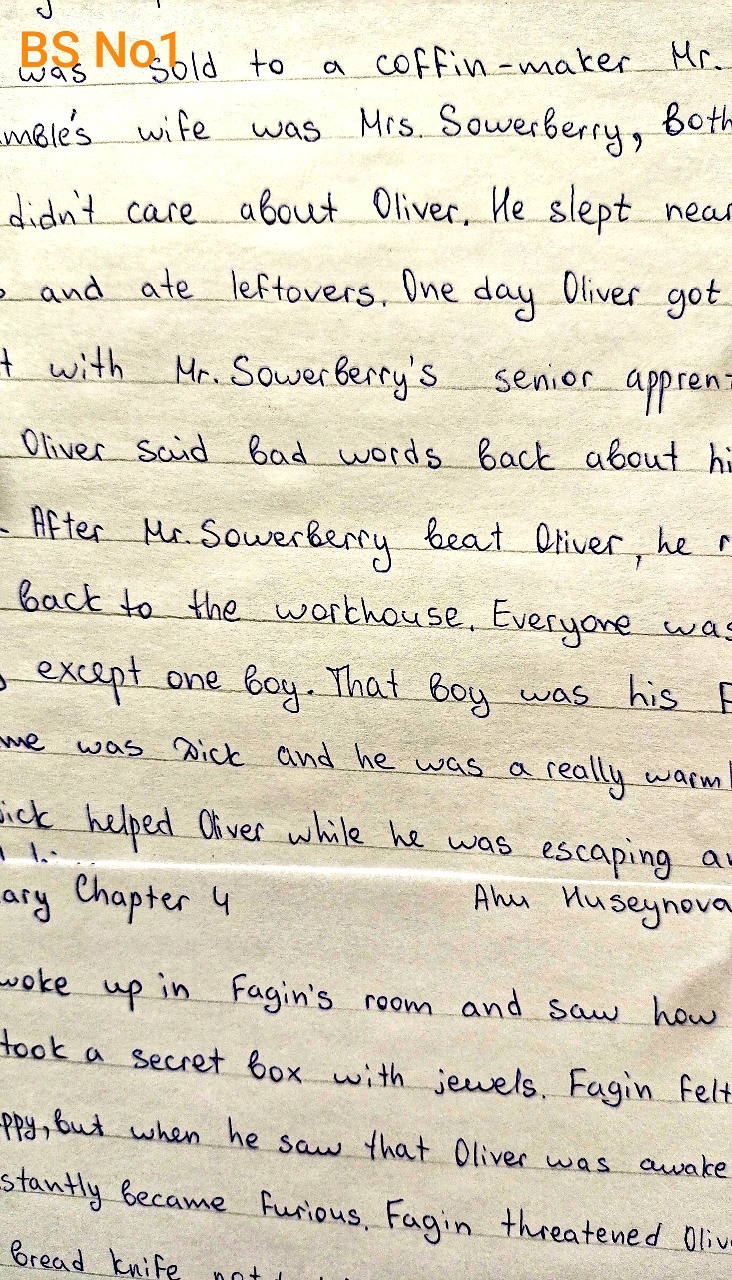 BS No1
was sold to a coffin-maker Mr.
mble's wife was Mrs. Sowerberry, both
didn't care about Oliver. He slept near
and ate leftovers. One day Oliver got
t with Mr. Sowerberry's senior appren
Oliver said bad words back about hi
. After Mr. Sowerberry beat Oliver, he r
back to the workhouse. Everyone was
except one boy. That boy was his F
me was Dick and he was a really warm
ick helped Oliver while he was escaping a
ary Chapter 4 Ahu Huseynova
woke up in Fagin's room and saw how
took a secret box with jewels. Fagin felt
ppy, but when he saw that Oliver was awake
stantly became furious. Fagin threatened Oliv
bread knife